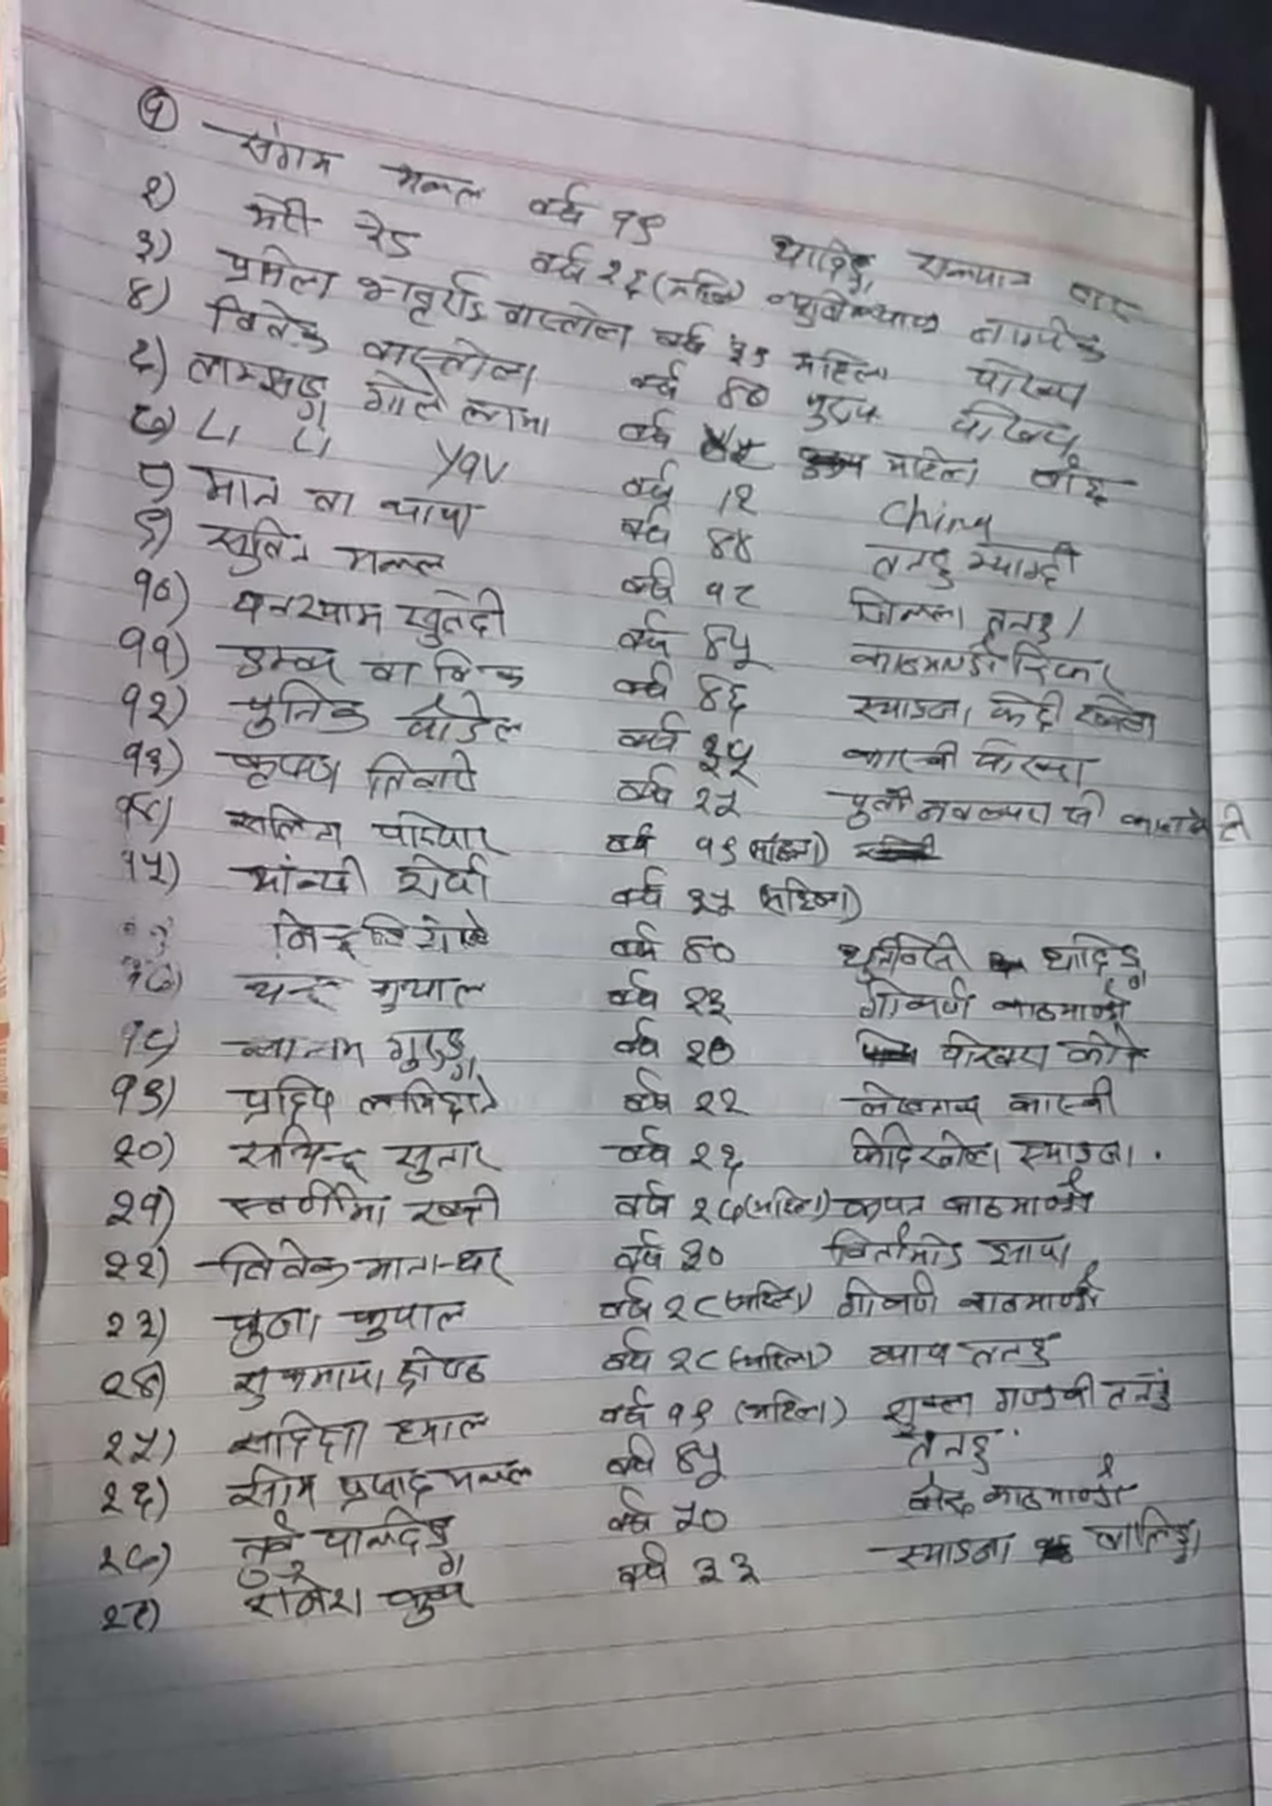 १ संगम मल्ल वर्ष १९ धादिङ्ग
२) मेरी रेड वर्ष २६ (महिला) न्युजिल्याण्ड नागरिक
३) प्रमिला भट्टराई वास्तोला वर्ष ३९ महिला पोखरा
४) विवेक वास्तोला वर्ष ४७ पुरुष पोखरा
६) लामसाङ्ग गोले लामा वर्ष महिला
७) Li Li Yav वर्ष १२ China
८) मान वा थापा वर्ष ४४ तनहु म्याग्दी
९) सुविन मल्ल वर्ष १८ जिल्ला तनहु।
१०) घनश्याम खुलेदी वर्ष ४५ काठमाण्डौ
११) डम्बर वा विक वर्ष ४६ स्याङजा
१२) पुनित पौडेल वर्ष ३५ कास्की पोखरा
१३) कृष्ण तिवारी वर्ष २५ पुर्व नवलपरासी
१४) सलिना परियार वर्ष १९ (महिला)
१५) आंन्छी शेर्पा वर्ष ३५ (महिला)
वर्ष ६० धादिङ्ग
१७) चन्द्र भुपाल वर्ष २३ गोकर्ण काठमाण्डौ
१८) गुरुङ्ग वर्ष २७ पोखरा
१९) प्रदिप लामिछाने वर्ष २२ लेखनाथ कास्की
२०) सचिन्द्र सुनार वर्ष २६ फेदिखोला स्याङजा.
२१) स्वर्णीमा रक्ती वर्ष २७ (महिला) कपन काठमाण्डौ
२२) विवेक मानन्धर वर्ष ३० विर्तामोड झापा
२३) पुजा भुपाल वर्ष २८ (महिला) गोकर्ण काठमाण्डौ
२४) सुकमाया श्रेष्ठ वर्ष २८ (महिला) व्यास तनहु
२५) सदिक्षा ह्माल वर्ष १९ (महिला) शुक्ला गण्डकी तनहुं
२६) सोम प्रसाद मल्ल वर्ष ४५ तनहु.
२७) वर्ष ५० बौद्ध काठमाण्डौ
२८) रमेश वर्ष ३३ स्याङजा वालिङ्ग।